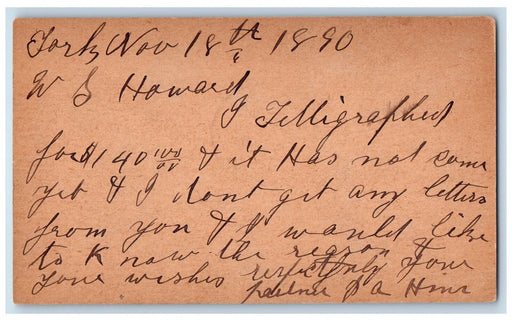 York Nov 18th 1890
W S Howard
I Telligraphed
for $140 00/00 & it Has not come
yet & I dont get any letters
from you & I would like
to Know the reason
your wishes respectfully your
partner S A